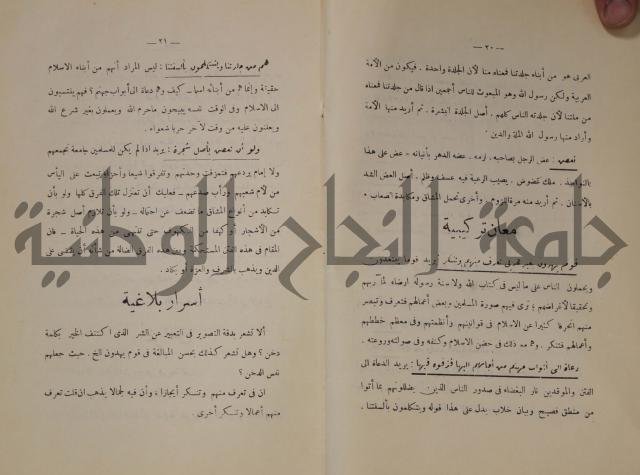 — ٢٠ —
العربى هو من أبناء جلدتنا فمعناه منا لأن الجلدة واحدة . فيكون من الأمة
العربية ولكن رسول الله وهو المبعوث للناس أجمعين اذا قال من جلدتنا فمعناه
من ملتنا لأن جلدته الناس كلهم . أصل الجلدة البشرة . ثم أريد منها الأمة
وأراد منها رسول الله الملة والدين
تعض : عض الرجل بصاحبه . لزمه . عضه الدهر بأنيابه - عض على هذا
بالنواجذ . ملك عضوض . يصيب الرعية فيه عسف وظلم . أصل العض الشد
بالأسنان . ثم أريد منه مرة اللزوم . وأخرى تحمل المشاق ومكابدة الصعاب .
معان تركيبية
قوم يهدون بغير هديي تعرف منهم وتنكر : يريد قوما يعتقدون
ويحملون الناس على ما ليس فى كتاب الله ولا سنة رسوله ارضاء لمآربهم
وتحقيقا لأغراضهم ؛ ترى فيهم صورة المسلمين وبعض أعمالهم فتعرف وتبصر
منهم انحرافا كثيرا عن الاسلام فى قوانينهم وأنظمتهم وفى معظم خططهم
وأعمالهم فتنكر . وهم مع ذلك فى حضن الاسلام وكنفه وفى صولته وروعته .
دعاة الى أبواب جهنم من أجابهم اليها قذفوه فيها : يريد الدعاة الى
الفتن والموقدين نار البغضاء فى صدور الناس الذين يضللونهم بما أتوا
من منطق فصيح وبيان خلاب يدل على هذا قوله ويتكلمون بألسنتنا .
— ٢١ —
هم من جلدتنا ويتكلمون بألسنتنا : ليس المراد أنهم من أبناء الاسلام
حقيقة وإنما هم من أبنائه اسما - كيف وهم دعاة الى أبواب جهنم ؟ فهم ينتسبون
الى الاسلام وفى الوقت نفسه يبيحون ماحرم الله ويعملون بغير شرع الله
ويعلنون عليه من وقت لآخر حربا شعواء .
ولو أن تعض بأصل شجرة : يريد اذا لم يكن للمسلمين جامعة تجمعهم
ولا إمام يردعهم فتمزقت وحدتهم وتفرقوا شيعا وأحزابا تبعث على اليأس
من لام شعبهم ورأب صدعهم - فعليك أن تعتزل تلك الفرق كلها ولو بأن
تكابد من أنواع المشاق ما تضعف عن احتماله - ولو بأن تلازم أصل شجرة
من الأشجار أو كهفا من الكهوف حتى تنتهى من هذه الحياة - فان
المقام فى هذه الفتن المستحكمة ومع هذه الفرق الضالة من شأنه أن يقضى على
الدين ويذهب بالشرف والعزة أو يكاد .
أسرار بلاغية
ألا تشعر بدقة التصوير فى التعبير عن الشر الذى اكتنف الخير بكلمة
دخن ؟ وهل تشعر كذلك بحسن المبالغة فى قوم يهدون الخ . حيث جعلهم
نفس الدخن ؟
ان فى تعرف منهم وتنكر أيجازا ، وأن فيه لجمالا يذهب ان قلت تعرف
منهم أعمالا وتنكر أخرى .
جامعة النجاح الوطنية